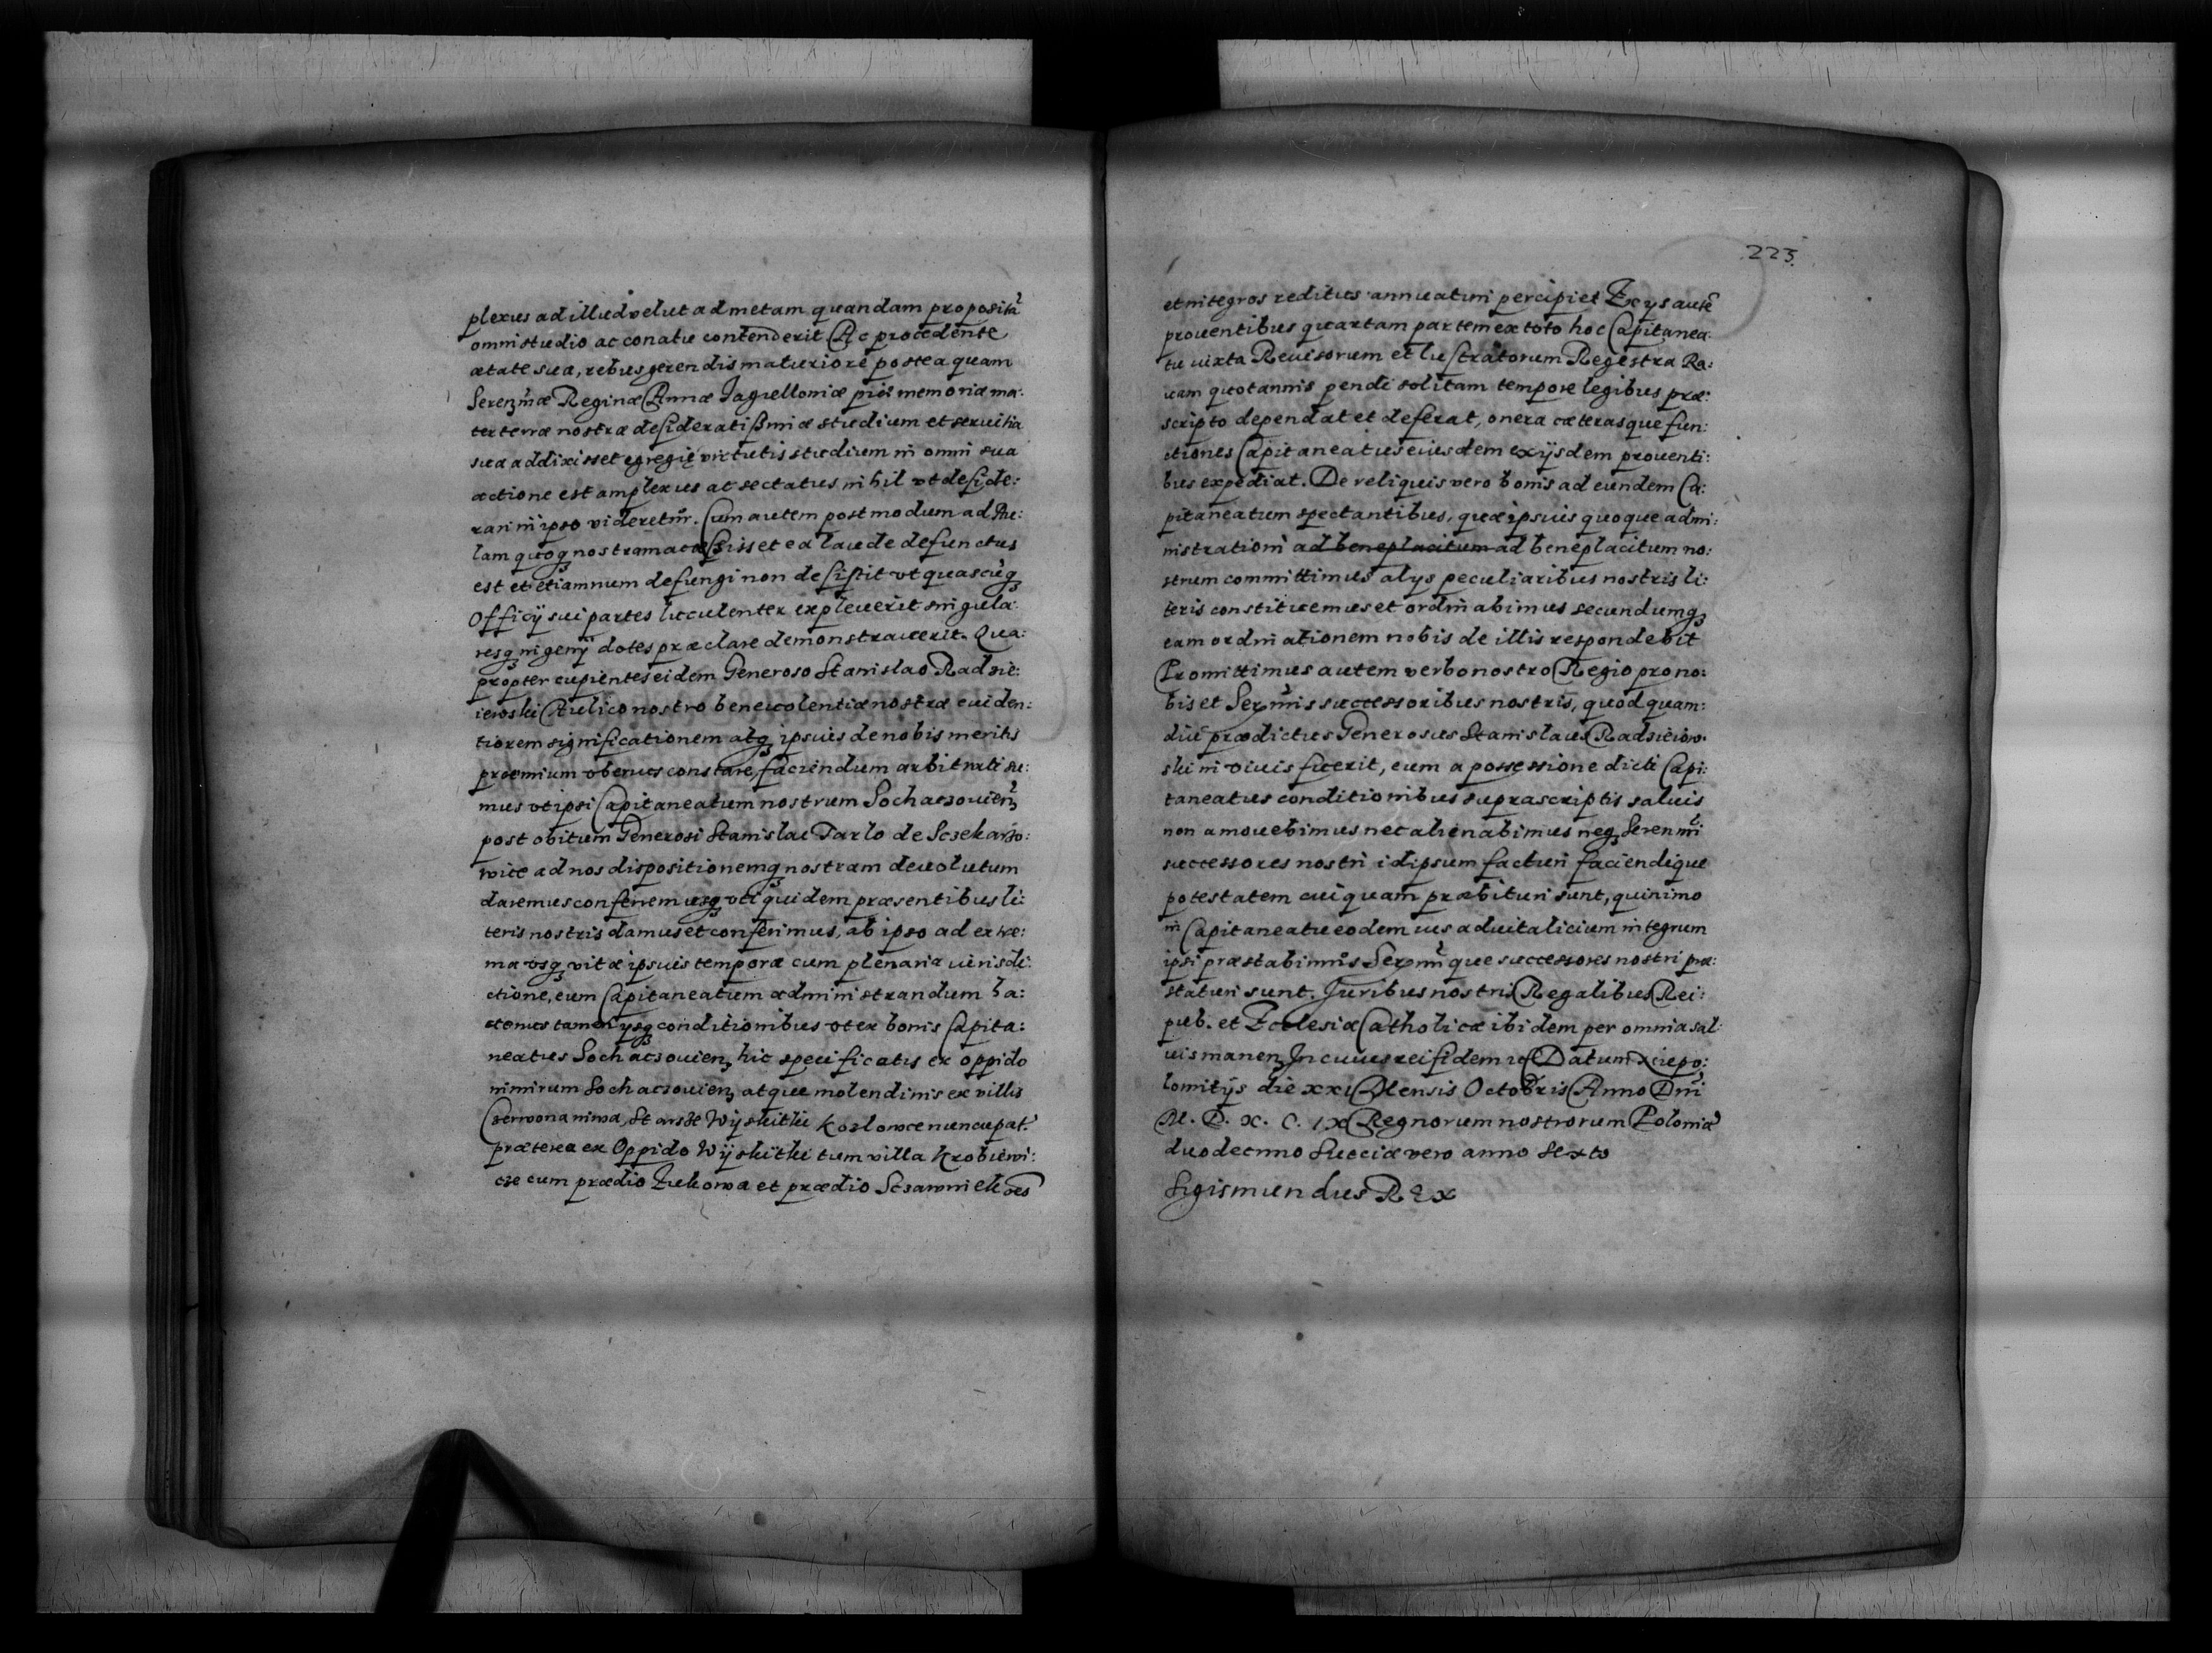 plexus ad illud velut ad metam quandam propositā
omni studio ac conatu contenderit Ac procedente
ætate sua, rebus gerendis maturiore postea quam
Serenm̄æ Reginæ Annæ Jagielloniæ piæ memoriæ ma:
terteræ nostræ desideratissimæ studium et servitia
sua addixisset egregię virtutis studium in omni sua
actione est amplexus ac sectatus, nihil vt deside:
rari in ipso videretur. Cum autem postmodum ad Au:
lam quoq̨ nostram accessisset ea laude defunctus
est et etiamnum defungi non desistit vt quascūq̨
Officÿ sui partes luculenter expleuerit singula:
resq̨ ingenÿ dotes præclare demonstrauerit. Qua:
propter cupientes eidem Generoso Stanislao Radzie:
ieroski Aulico nostro beneuolentiæ nostræ euiden:
tiorem significationem atq̨ ipsius de nobis meritis
præmium vberius constare, faciendum arbitrati su:
mus vt ipsi Capitaneatum nostrum Sochaczouien̄
post obitum Generosi Stanislai Tarlo de Sczekarzo:
wice ad nos dispositionemq̨ nostram deuolutum
daremus conferremusq̨ vti quidem præsentibus li:
teris nostris damus et conferimus, ab ipso ad extre:
ma vsq̨ vitæ ipsius tempora cum plenaria iurisdi:
ctione, eum Capitaneatum administrandum ha:
tenus tamen ysq̨ conditionibus vt ex bonis Capita:
neatus Sochaczouien̨ hic specificatis ex oppido
nimirum Sochaczouien̨ atque molendinis ex villis
Czerwona niwa, Starske Wÿskitki Kozlowce nuncupat.
præterea ex Oppido Wÿskitki tum villa Krobiewi:
cze cum prædio Zukowa et prædio Sczawniek oēs
223.
et integros reditus annuatim percipiet Ex ys autē
prouentibus quartam partem ex toto hoc Capitanea:
tu iuxta Reuisorum et lustratorum Regestra Ra:
uam quotannis pendi solitam tempore legibus præ:
scripto dependat et deferat, onera cæterasque fun:
ctiones Capitaneatus eiusdem ex ÿsdem prouenti:
bus expediat. De reliquis vero bonis ad eundem Ca:
pitaneatum spectantibus, quæ ipsius quoque admi:
nistrationi ad beneplacitum ad beneplacitum no:
strum committimus alys peculiaribus nostris li:
teris constituemus et ordinabimus secundumq̨
eam ordinationem nobis de illis respondebit
Promittimus autem verbo nostro Regio pro no:
bis et Serm̄is successoribus nostris, quod quam:
diu prædictus Generosus Stanislaus Radzieiow:
ski in viuis fuerit, eum a possessione dicti Capi:
taneatus conditionibus suprascriptis saluis
non amouebimus nec alienabimus neq̨ Serenm̄i
successores nostri id ipsum facturi faciendique
potestatem cuiquam præbituri sunt, quinimo
in Capitaneatu eodem ius aduitalicium integrum
ipsi præstabimus Serm̄ique successores nostri præ:
staturi sunt. Juribus nostris Regalibus Rei:
pub. et Ecclesiæ Catholicæ ibidem per omnia sal:
uis manen̨ In cuius rei fidem ꝛc Datum Niepo:
lomitÿs die XXI Mensis Octobris Anno Dn̄i
M. D. X. C. IX Regnorum nostrorum Poloniæ
duodecimo Sueciæ vero anno Sexto
Sigismundus Rex